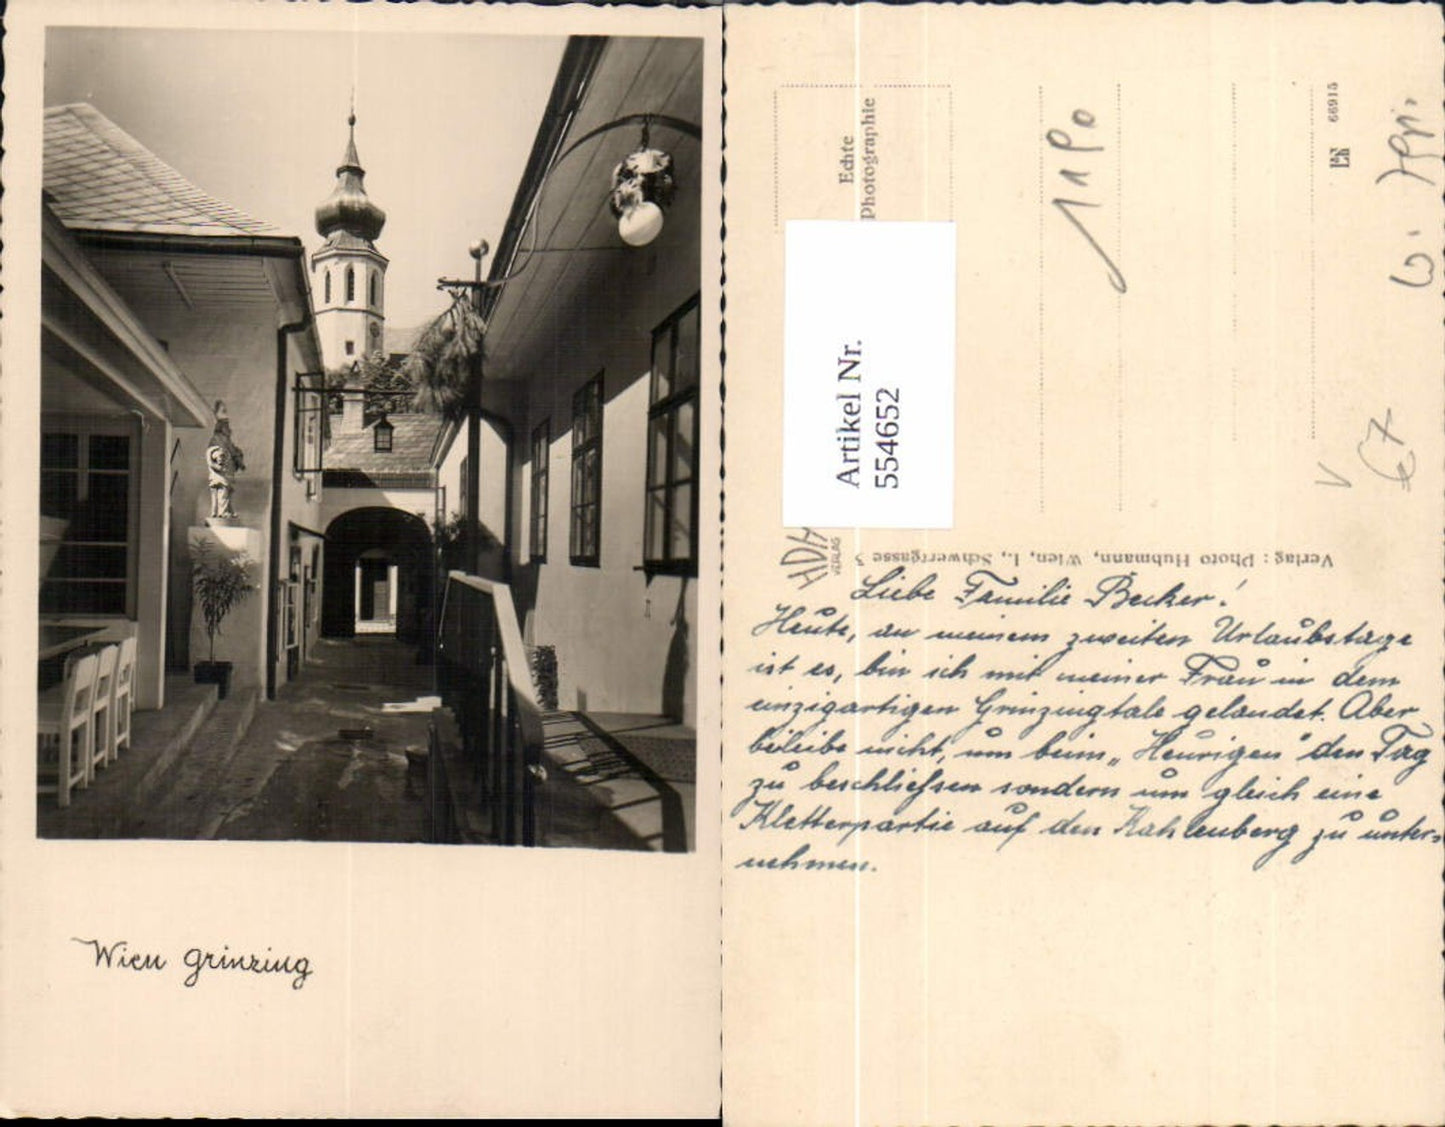 Wien Grinzing
Echte
Photographie
Artikel Nr.
554652
66915
€7
HDH
VERLAG
Verlag: Photo Huhmann, Wien, I., Schwertgasse 3
Liebe Familie Becker!
Heute, an meinem zweiten Urlaubstage
ist es, bin ich mit meiner Frau in dem
einzigartigen Grinzingtale gelandet. Aber
beileibe nicht, um beim „Heurigen" den Tag
zu beschließen sondern um gleich eine
Kletterpartie auf den Kahlenberg zu unter-
nehmen.